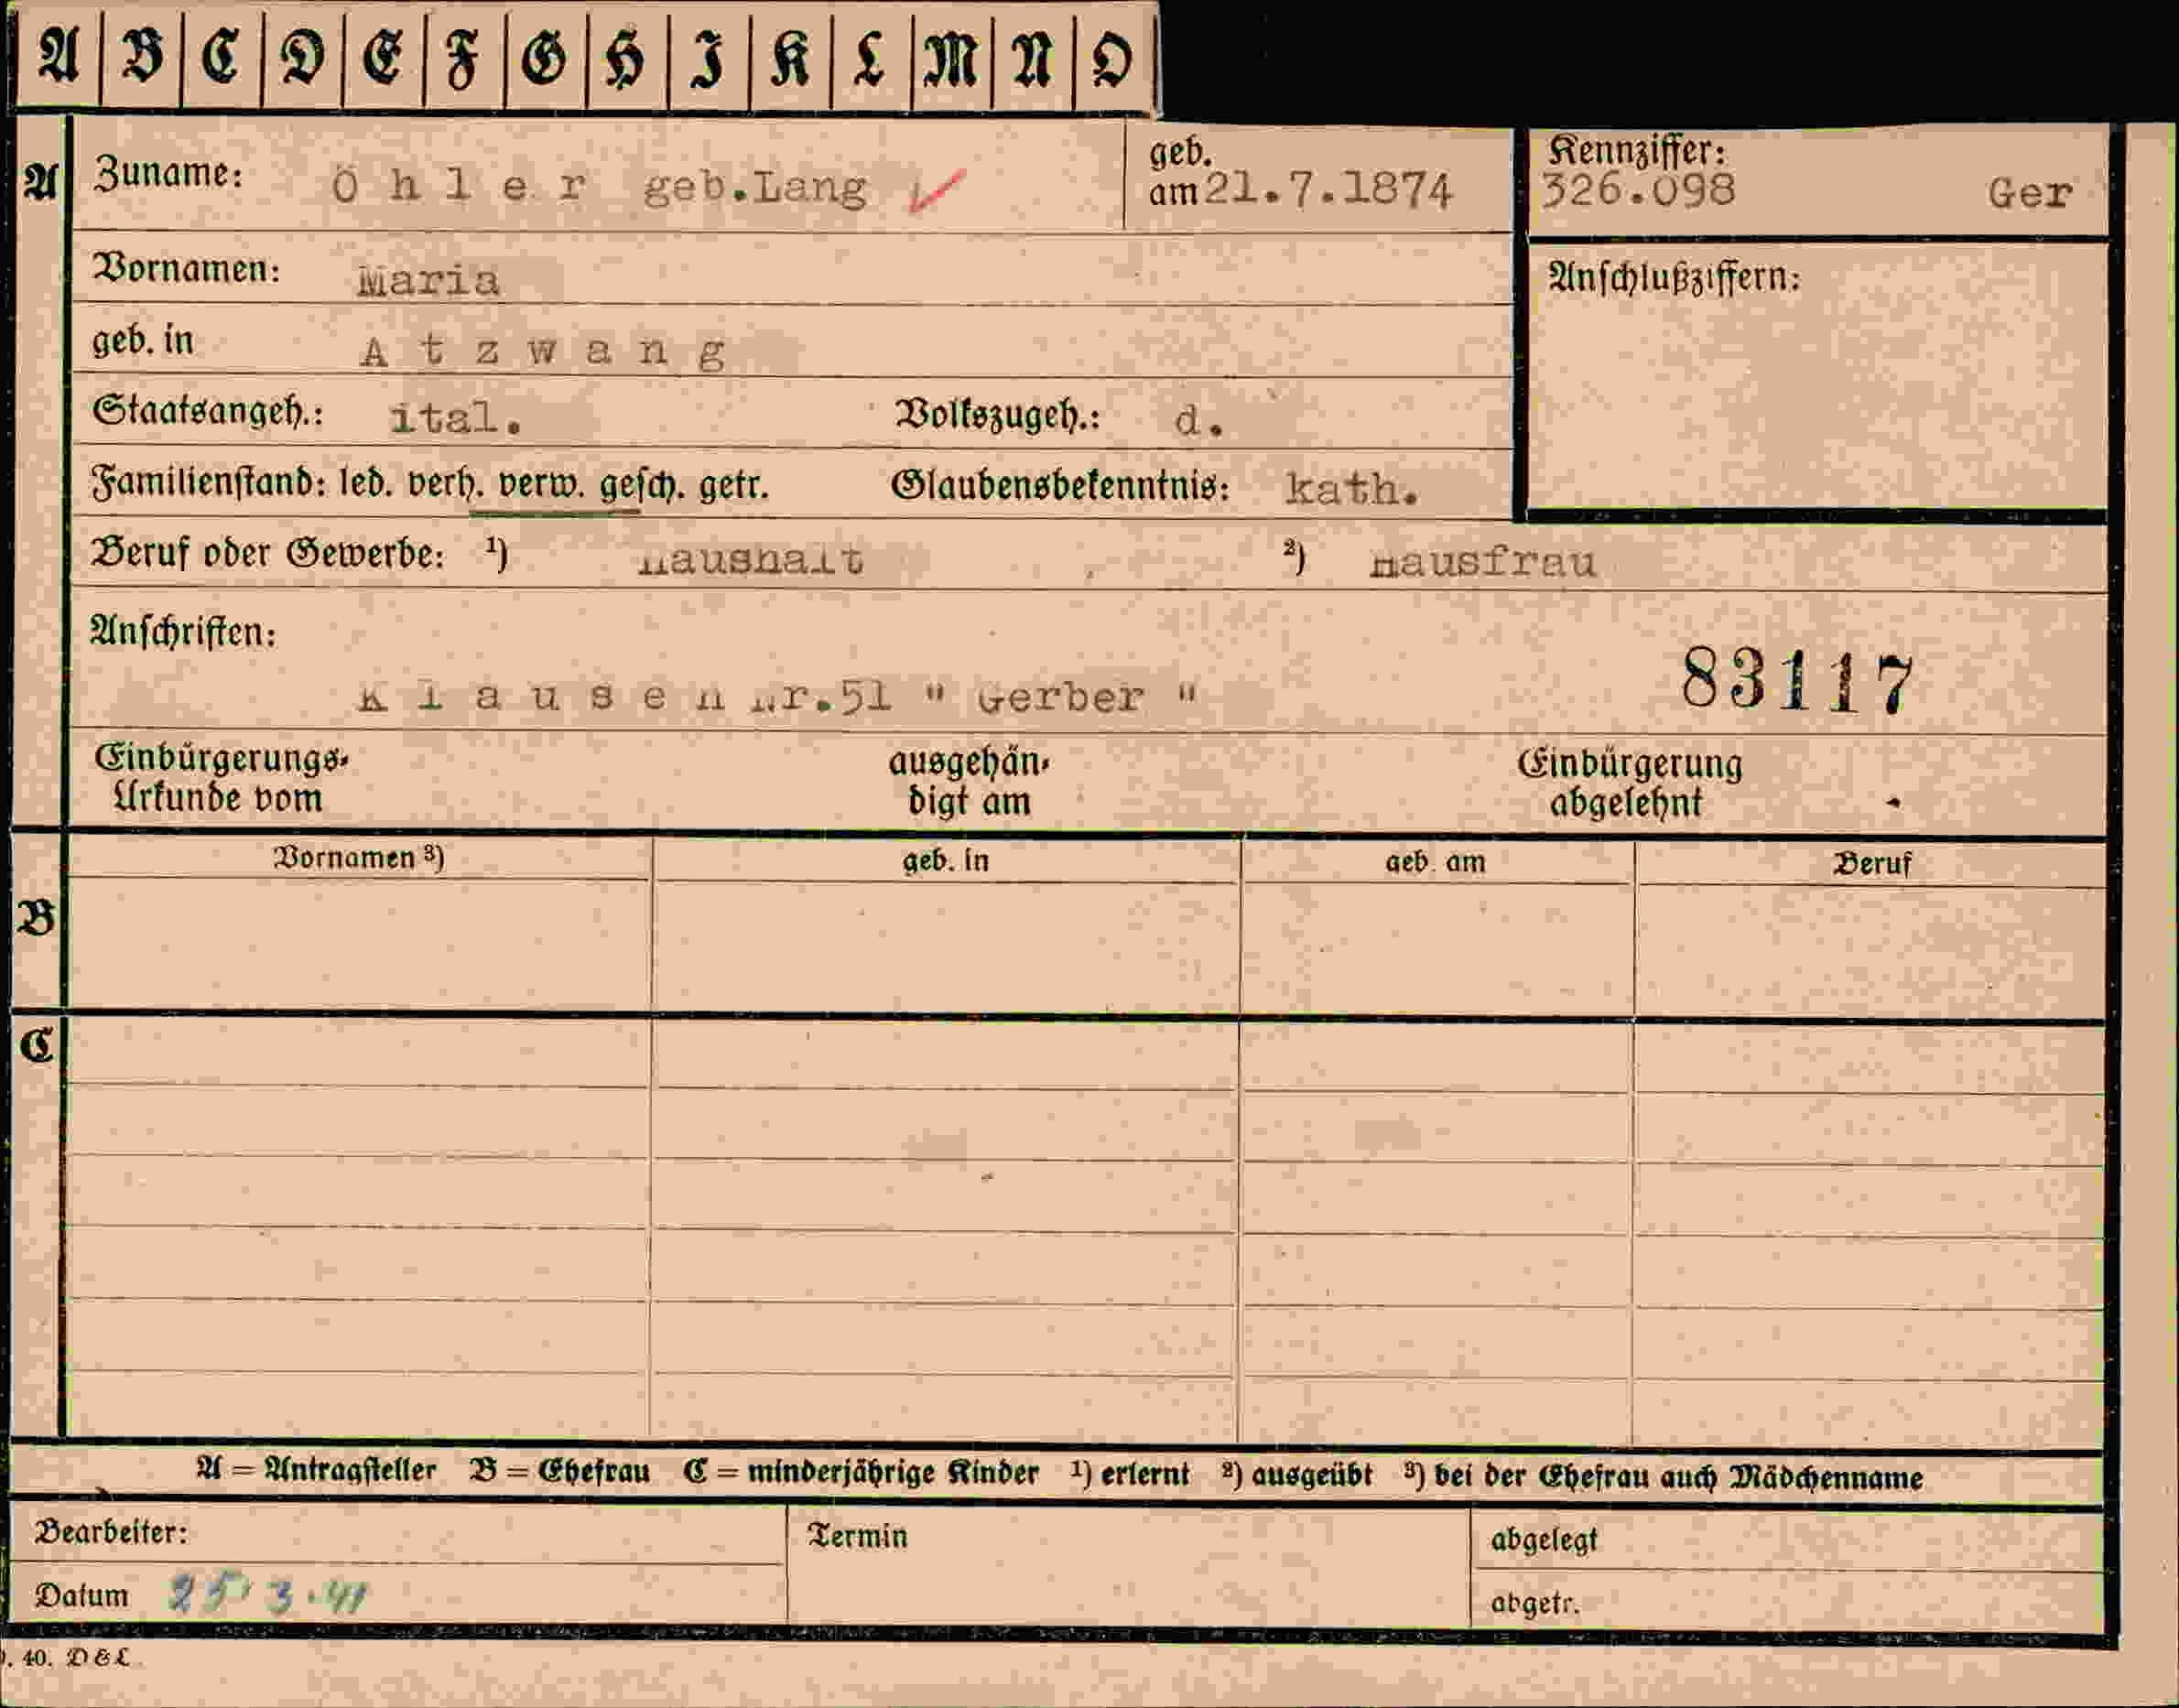 A B C D E F G H I K L M N O
A Zuname: Ö h l e r geb.Lang geb. am 21.7.1874 Kennziffer: 326.098 Ger
Vornamen: Maria Anschlußziffern:
geb. in A t z w a n g
Staatsangeh.: ital. Volkszugeh.: d.
Familienstand: led. verh. verw. gesch. getr. Glaubensbekenntnis: kath.
Beruf oder Gewerbe: ¹) Haushalt ²) Hausfrau
Anschriften:
83117
K l a u s e n Nr.51 " Gerber "
Einbürgerungs- ausgehän- Einbürgerung
Urkunde vom digt am abgelehnt
Vornamen ³) geb. in geb. am Beruf
B
C
A = Antragsteller B = Ehefrau C = minderjährige Kinder ¹) erlernt ²) ausgeübt ³) bei der Ehefrau auch Mädchenname
Bearbeiter: Termin abgelegt
Datum 25.3.41 abgetr.
. 40. D & L